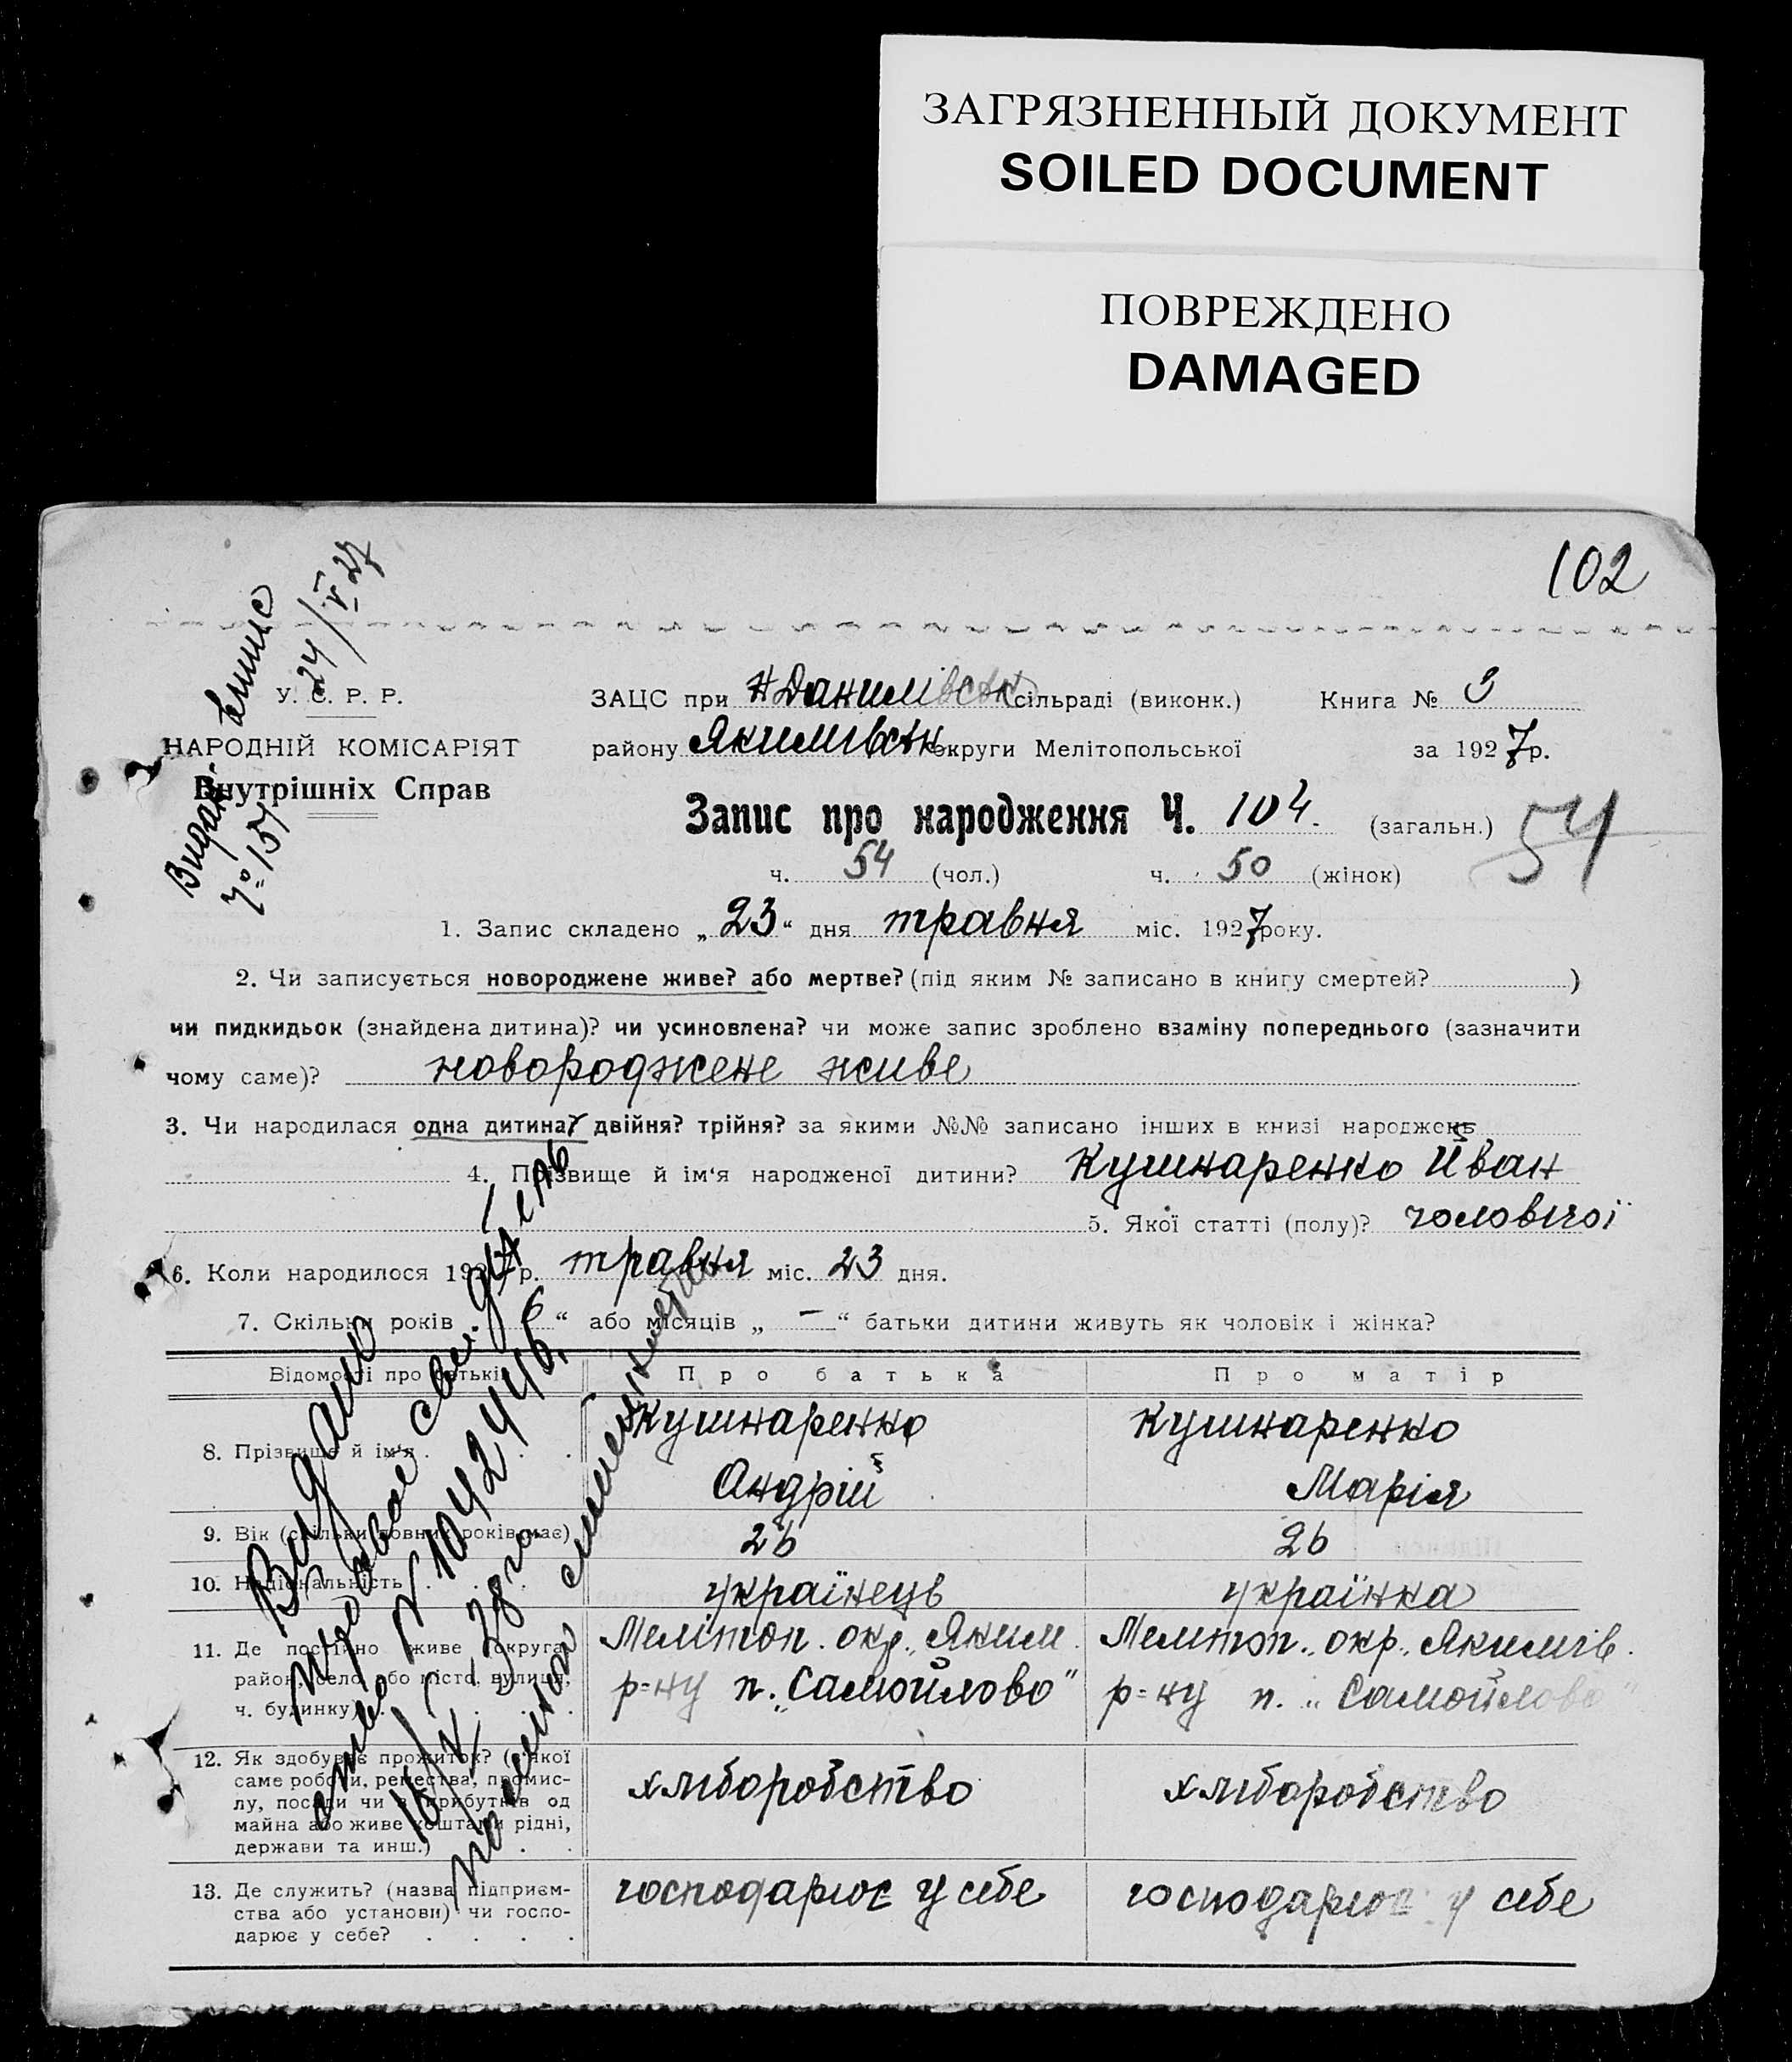 ЗАГРЯЗНЕННЫЙ ДОКУМЕНТ
SOILED DOCUMENT
ПОВРЕЖДЕНО
DAMAGED
102
24/V 27
У. С. Р. Р.
НАРОДНІЙ КОМІСАРІЯТ
Внутрішніх Справ
ЗАЦС при Н Данилівськ сільраді (виконк.) Книга № 3
району Якимівськ округи Мелітопольської за 1927 р.
Запис про народження Ч. 104. (загальн.) 54
ч. 54 (чол.) ч. 50 (жінок)
1. Запис складено „23“ дня травня міс. 1927 року.
2. Чи записується новороджене живе? або мертве? (під яким № записано в книгу смертей? )
чи пидкидьок (знайдена дитина)? чи усиновлена? чи може запис зроблено взаміну попереднього (зазначити
чому саме)? новороджене живе
3. Чи народилася одна дитина? двійня? трійня? за якими №№ записано інших в книзі народжень
4. Прізвище й ім‘я народженої дитини? Кушнаренко Йван
5. Якої статті (полу)? чоловічої
6. Коли народилося 1927 р. травня міс. 23 дня.
7. Скільки років „6“ або місяців „—“ батьки дитини живуть як чоловік і жінка?
Відомості про батьків Про батька Про матір
8. Прізвище й ім‘я . Кушнаренко Андрій Кушнаренко Марія
9. Вік (скільки повних років має) 26 26
10. Національність . українець українка
11. Де постійно живе (округа,
район, село або місто, вулиця,
ч. будинку) .
Мелітоп. окр. Яким.
р=ну п. „Самойлово“
Мелітоп. окр. Якимів.
р=ну п. „Самойлово“
12. Як здобуває прожиток? (з якої
саме роботи, ремества, промис-
лу, посади чи з прибутків од
майна або живе коштами рідні,
держави та инш.)
хліборобство хліборобство
13. Де служить? (назва підприєм-
ства або установи) чи госпо-
дарює у себе? . . . .
господарює у себе господарює у себе
Видано
N 1042446